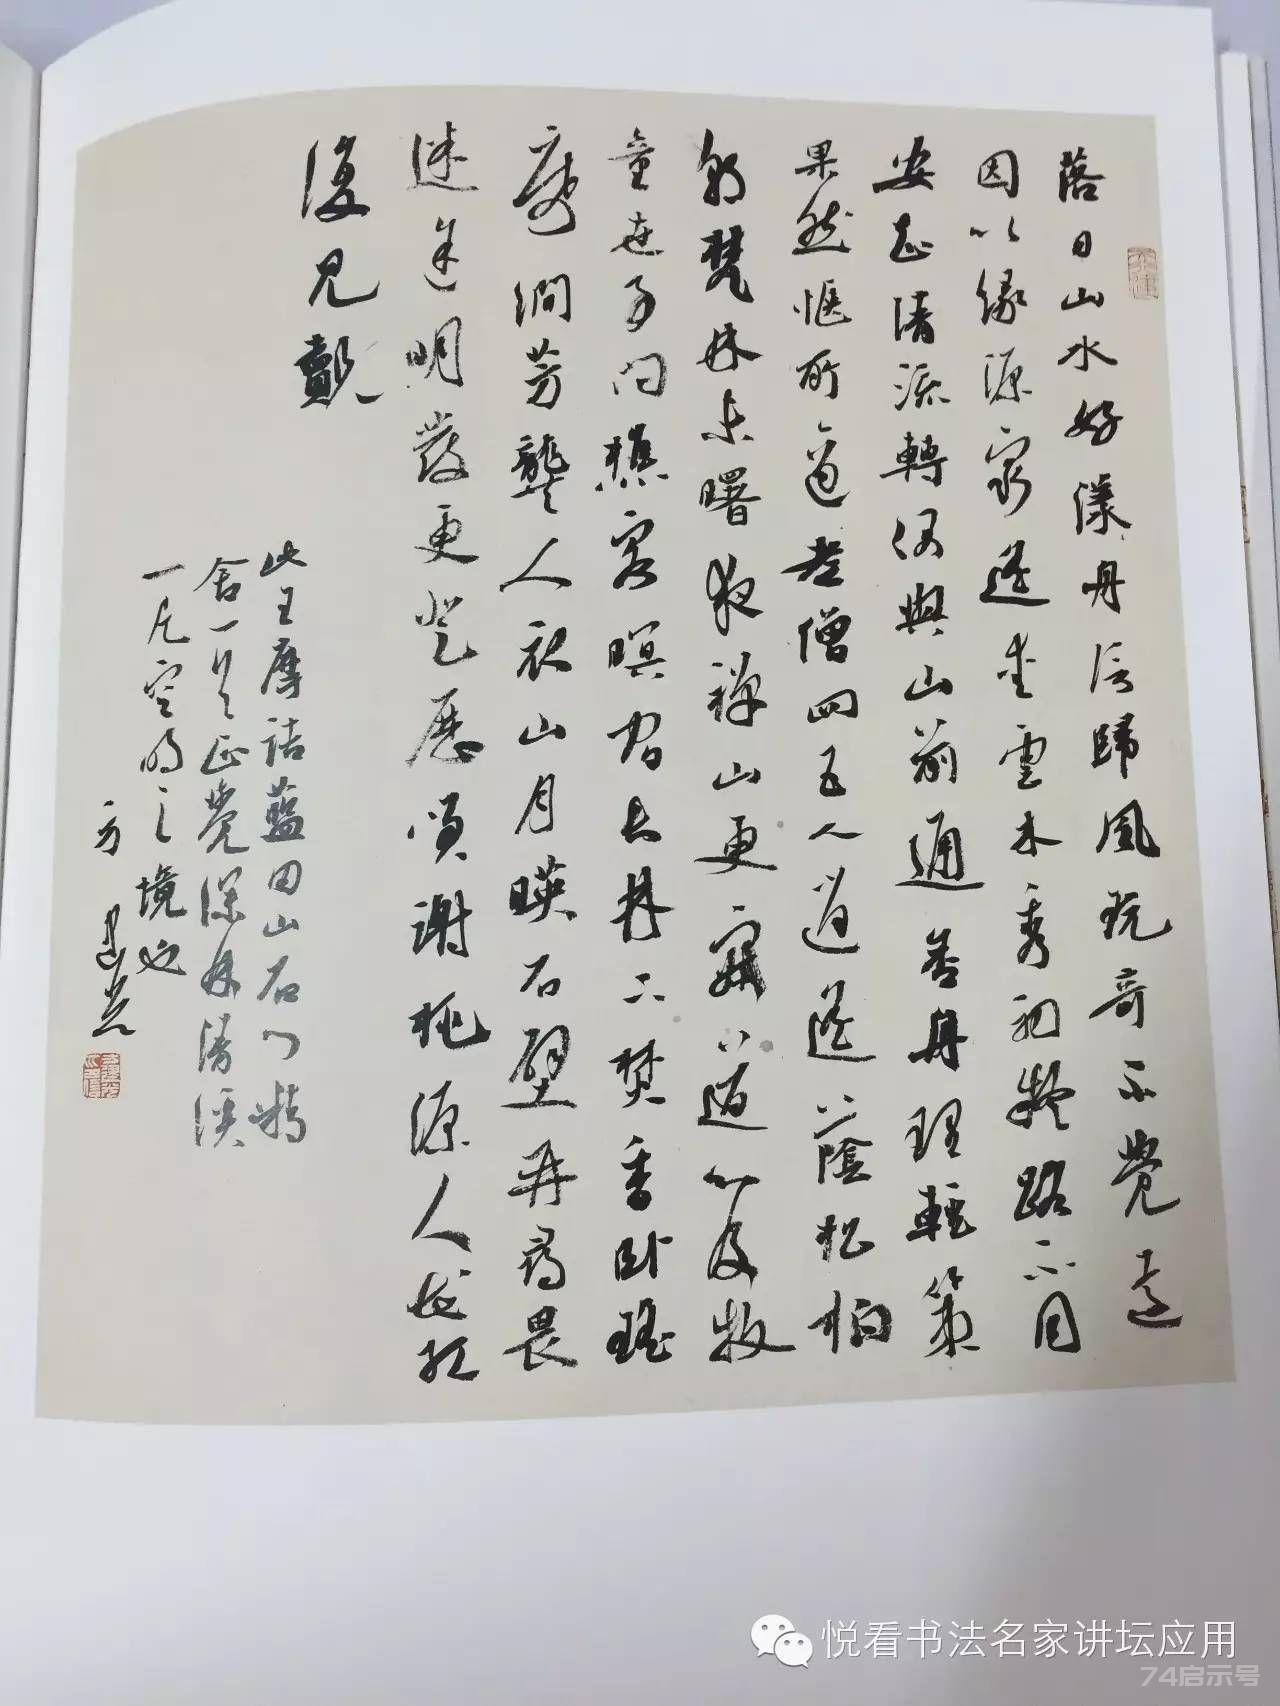 落日山水好漾舟信歸風玩奇不覺遠
因以緣源窮遥愛雲木秀初疑路不同
安知清流轉偶與山前通舍舟理輕策
果然愜所適老僧四五人逍遥蔭松柏
朝梵林未曙夜禪山更寂道心及牧
童世事問樵客暝宿長林下焚香卧瑶
席澗芳襲人衣山月映石壁再尋畏
迷明發更登歷笑謝桃源人花紅
復見覿
此王摩詰藍田山石門精
舍一首正覺深林清溪
一片空明之境也
方建光
悦看书法名家讲坛应用
74启示号